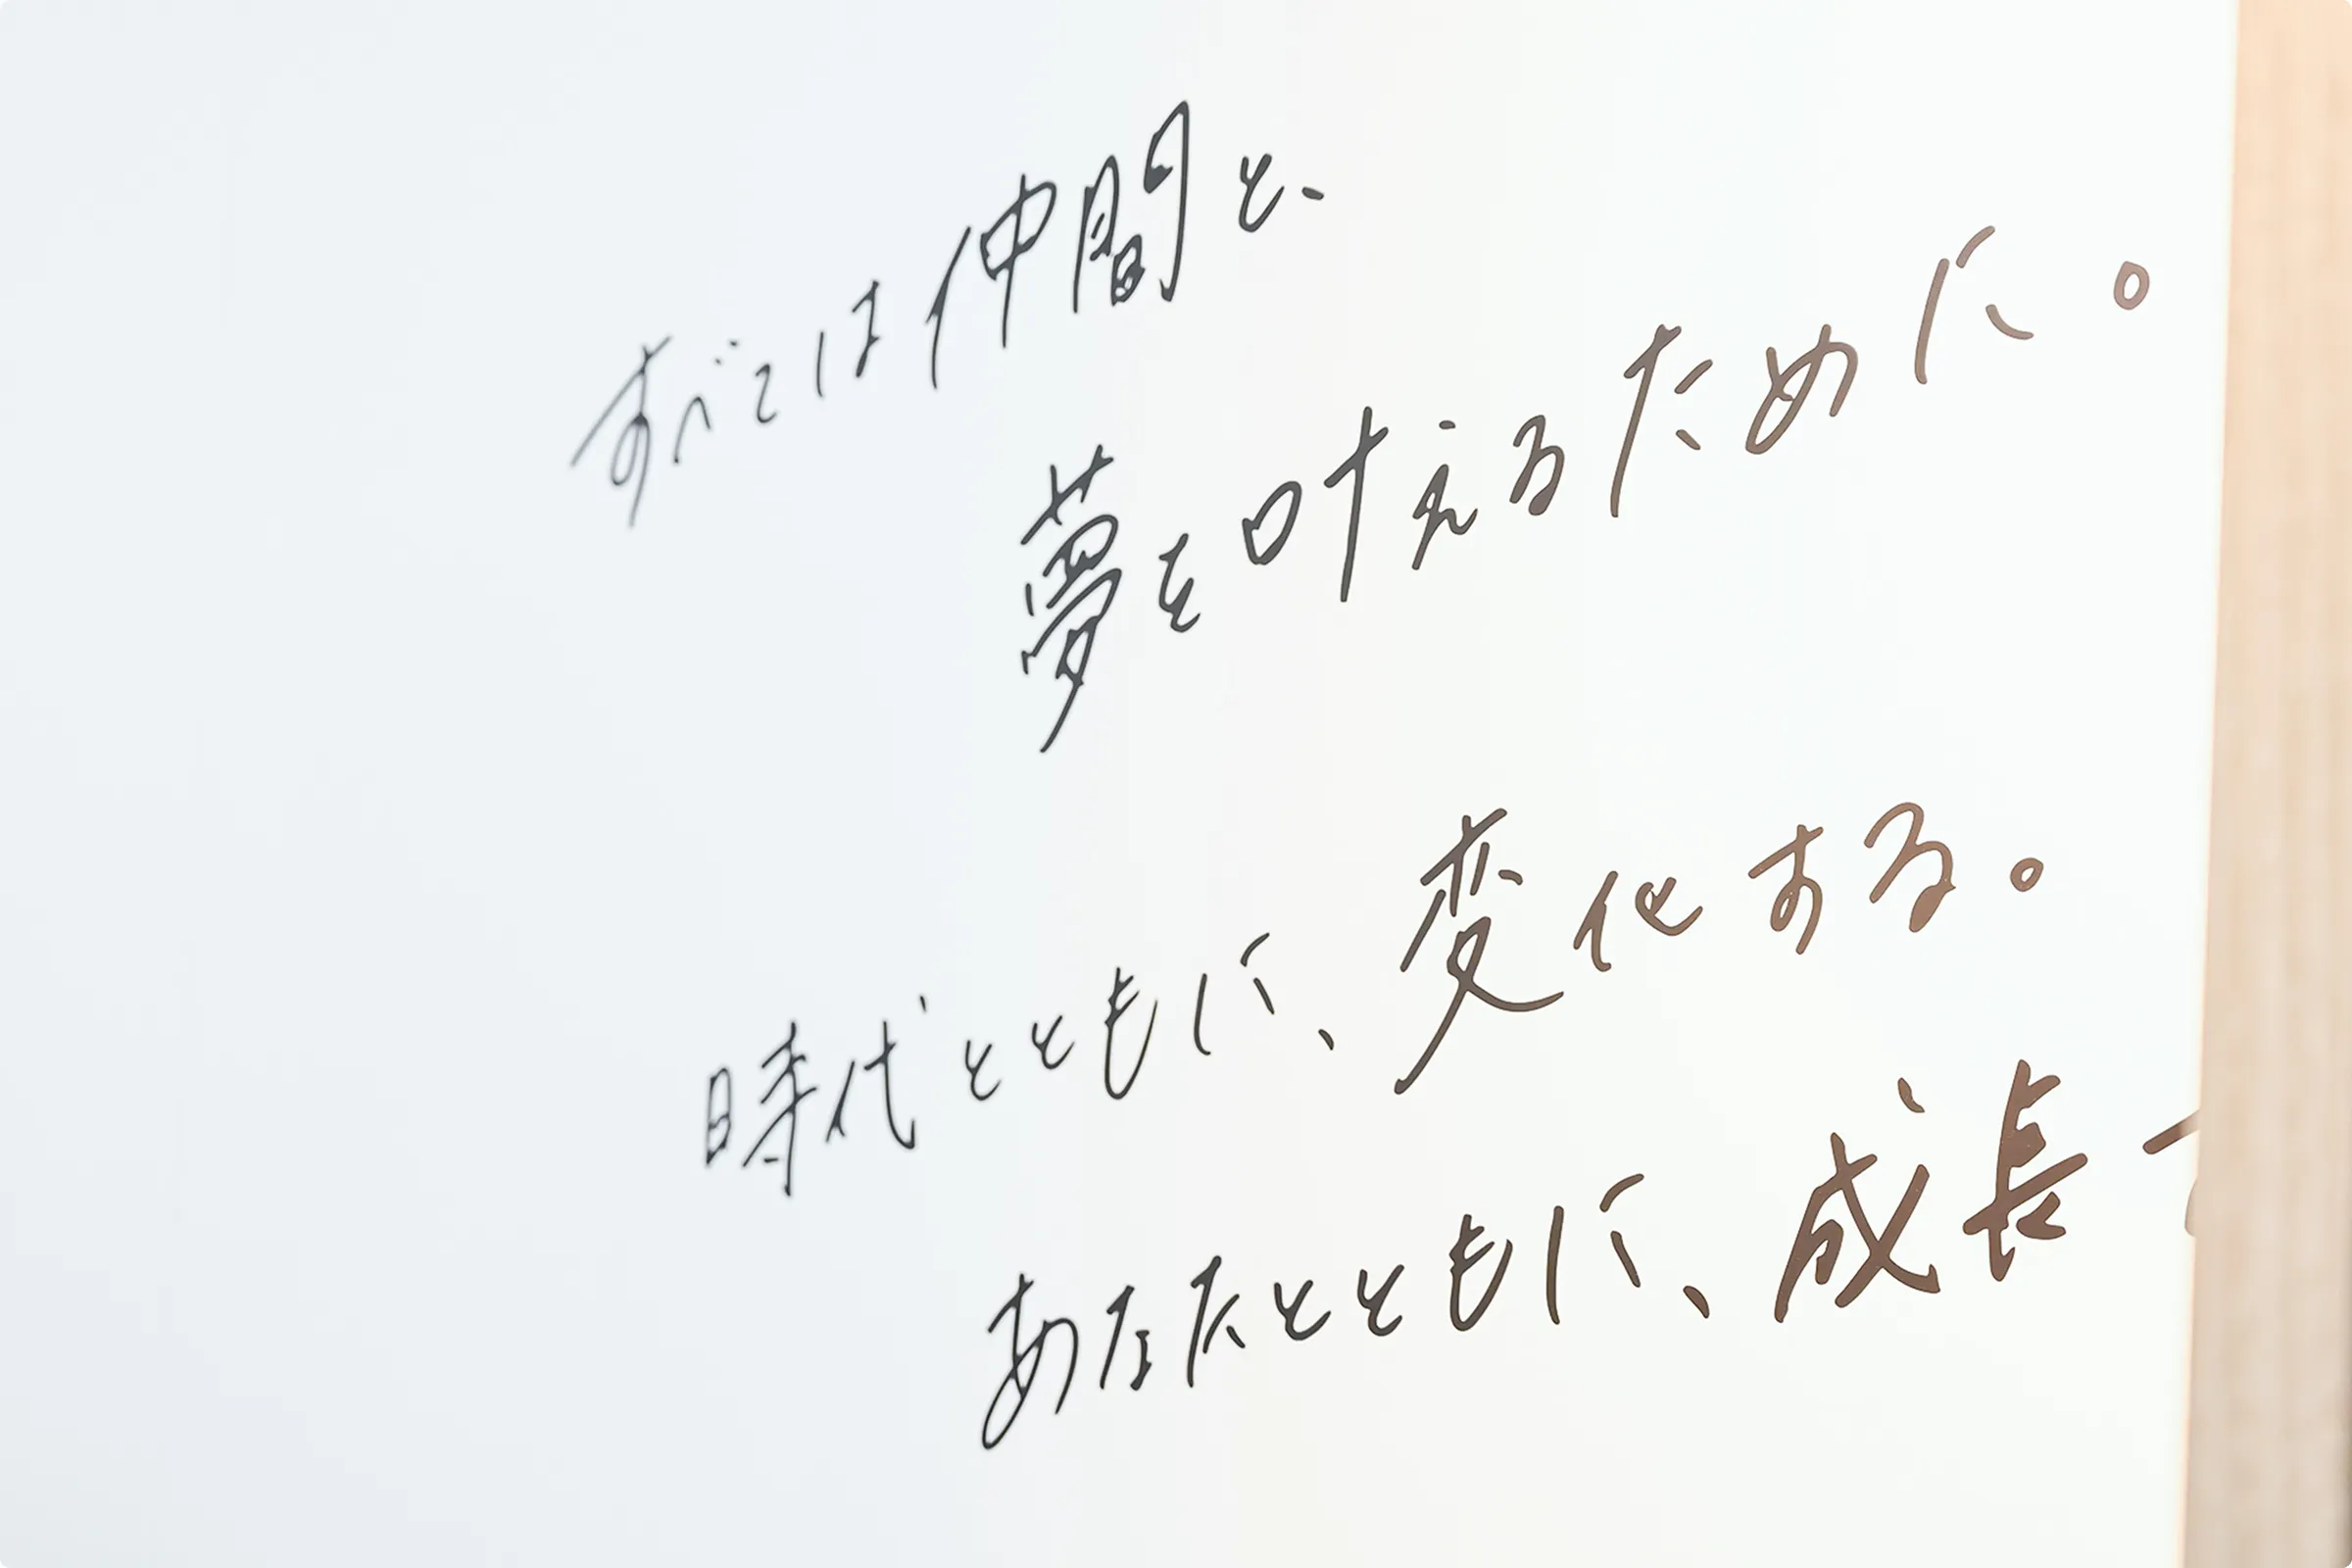 すべては仲間と、
夢を叶えるために。
時代とともに、変化する。
あなたとともに、成長